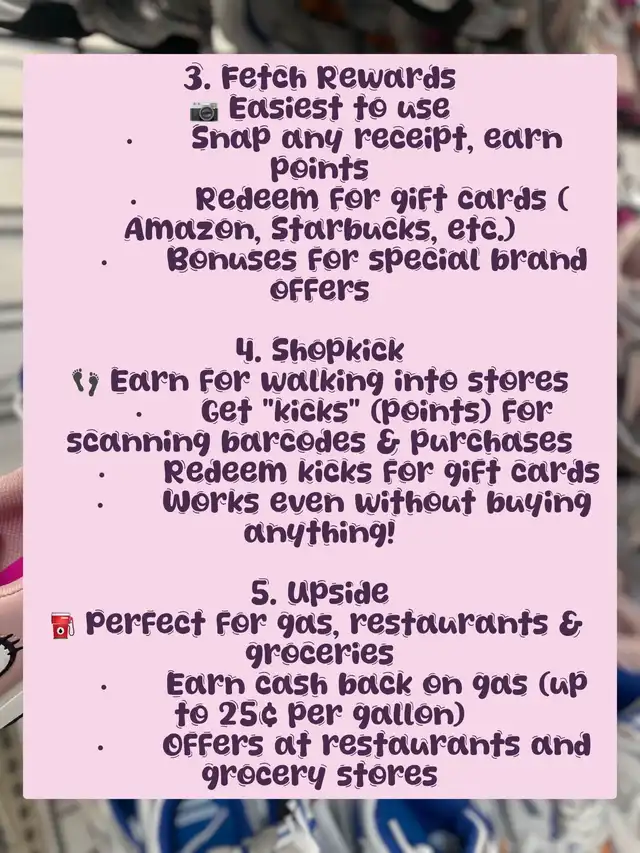 3. Fetch Rewards
📷 Easiest to use
• Snap any receipt, earn
points
• Redeem for gift cards (
Amazon, Starbucks, etc.)
• Bonuses for special brand
offers
4. Shopkick
👣 Earn for walking into stores
• Get "kicks" (points) for
scanning barcodes & purchases
• Redeem kicks for gift cards
• Works even without buying
anything!
5. Upside
⛽ Perfect for gas, restaurants &
groceries
• Earn cash back on gas (up
to 25¢ per gallon)
• Offers at restaurants and
grocery stores